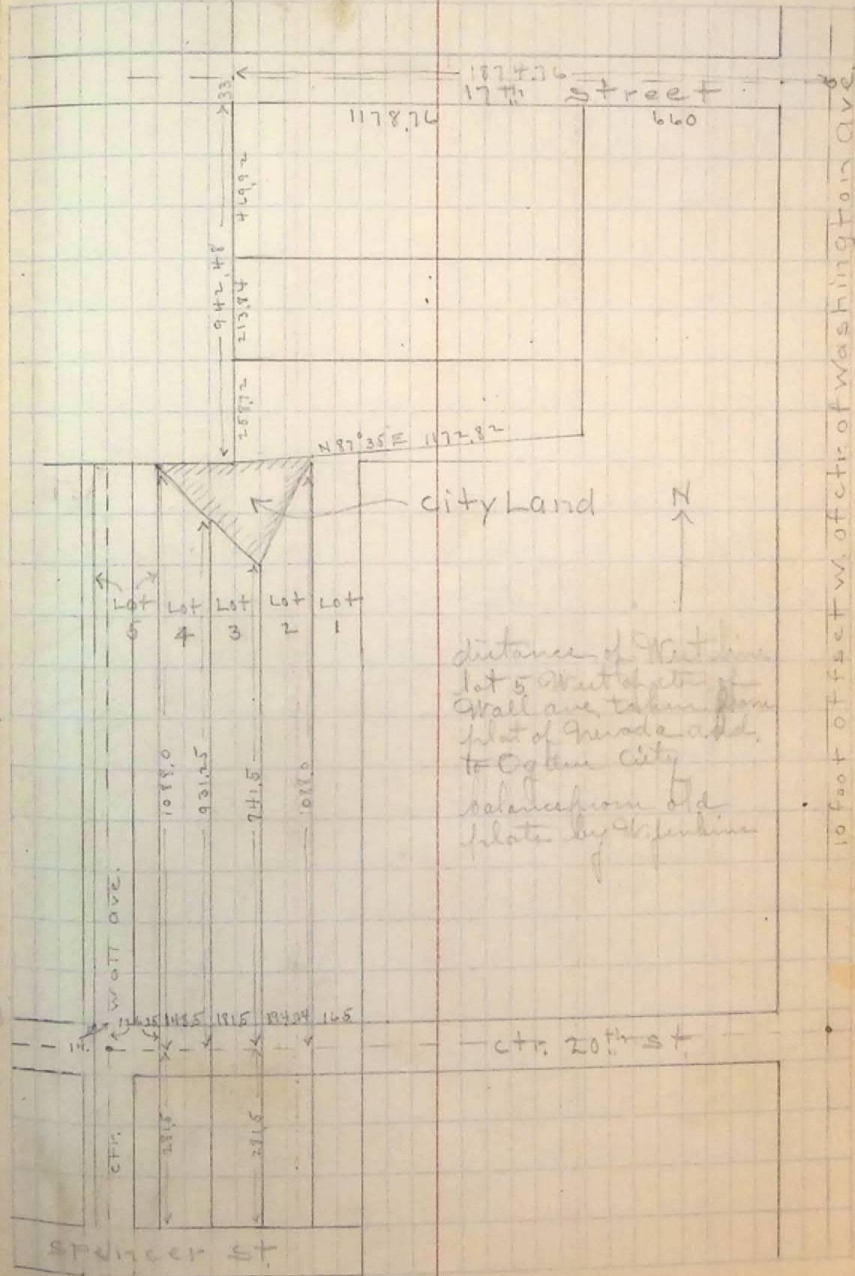 1874.76
17th street
33
1178.76
660
469.92
942.48
213.84
258.72
N 87° 35' E 1172.82
City Land
N
Lot 5
Lot 4
Lot 3
Lot 2
Lot 1
distance of West line
lot 5 West of ctr of
Wall ave. taken from
plat of Nevada add.
to Ogden City
balance from old
plats by W. Jenkins
1088.0
931.25
741.5
1088.0
Wall ave.
148.5
181.5
194.04
165
17
ctr. 20th st.
ctr.
281.5
Spencer St.
10 foot offset W. of ctr. of Washington Ave.